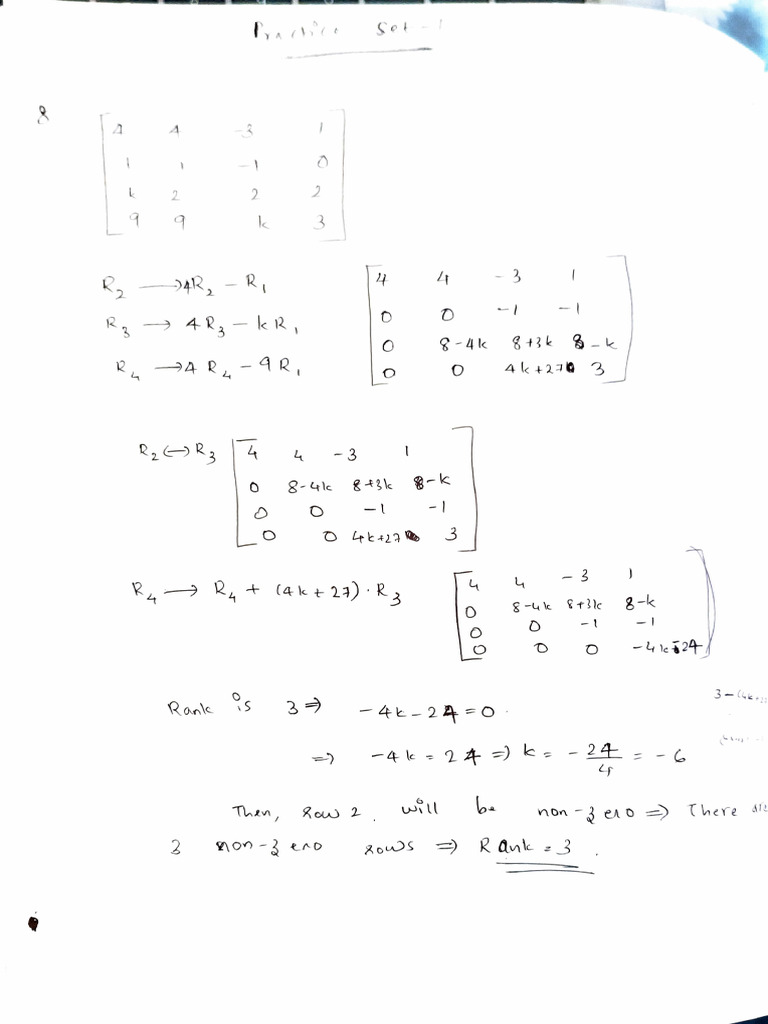 Practice Set-1
8
4 4 -3 1
1 1 -1 0
k 2 2 2
9 9 k 3
R2 → 4R2 - R1
R3 → 4R3 - kR1
R4 → 4R4 - 9R1
4 4 -3 1
0 0 -1 -1
0 8-4k 8+3k 8-k
0 0 4k+27 3
R2 ↔ R3
4 4 -3 1
0 8-4k 8+3k 8-k
0 0 -1 -1
0 0 4k+27 3
R4 → R4 + (4k+27)·R3
4 4 -3 1
0 8-4k 8+3k 8-k
0 0 -1 -1
0 0 0 -4k-24
Rank is 3 ⇒ -4k-24=0.
⇒ -4k = 24 ⇒ k = -24/4 = -6
Then, row 2 will be non-zero ⇒ There
3 non-zero rows ⇒ Rank = 3.